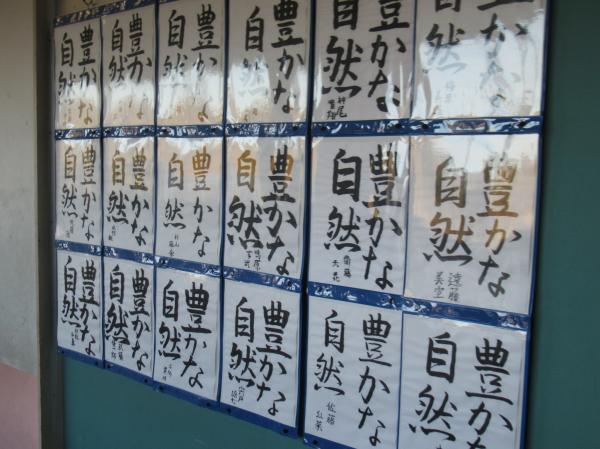 豊かな
自然
豊かな
自然
豊かな
自然
豊かな
自然
豊かな
自然
豊かな
自然
豊かな
自然
豊かな
自然
豊かな
自然
豊かな
自然
豊かな
自然
齋藤
豊かな
自然
遠藤
美空
豊かな
自然
豊かな
自然
豊かな
自然
豊かな
自然
宍戸
豊かな
自然
佐藤
豊かな
自然